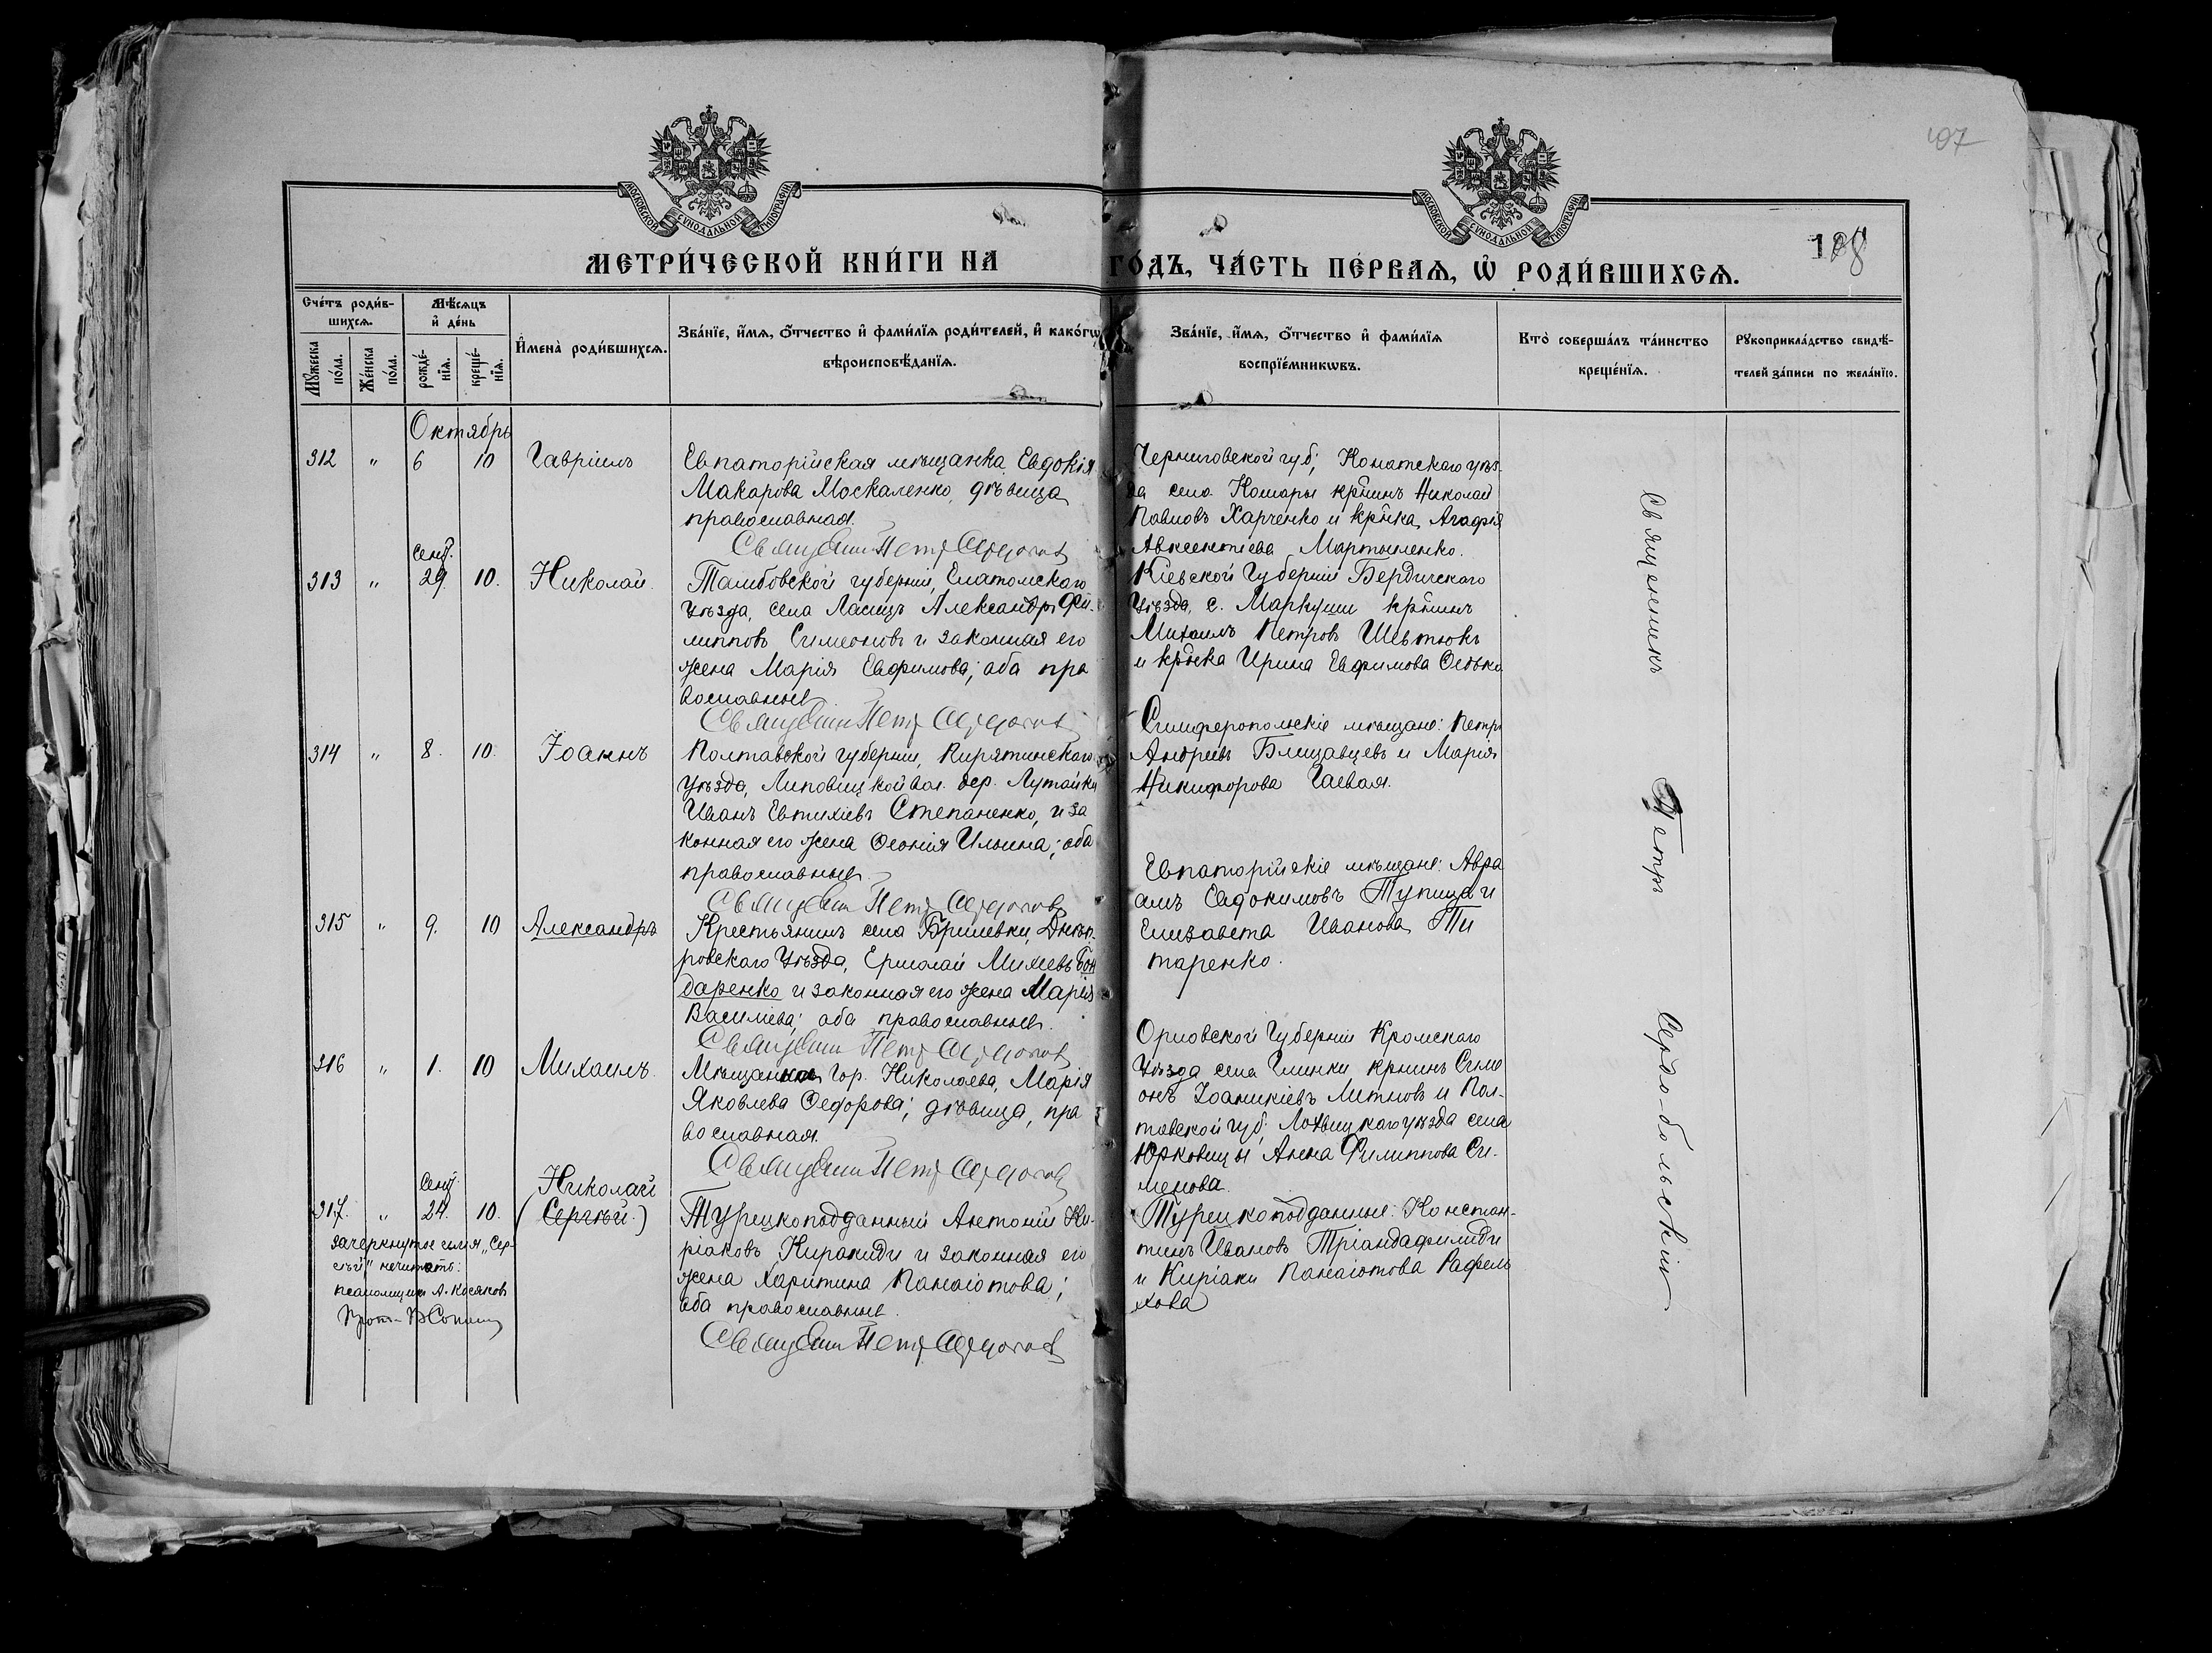 107
МОСКОВСКОЙ СѴНОДАЛЬНОЙ ТИПОГРАФІИ
МОСКОВСКОЙ СѴНОДАЛЬНОЙ ТИПОГРАФІИ
108
МЕТРИ́ЧЕСКОЙ КНИ́ГИ НА ГО́ДЪ, ЧА́СТЬ ПЕ́РВАѦ, Ѡ҆ РОДИ́ВШИХСѦ.
Сче́тъ роди́в-
шихсѧ.
Мꙋ́жеска по́ла.
Же́нска по́ла.
Мѣ́сѧцъ
и҆ де́нь
рожде́-
нїѧ.
креще́-
нїѧ.
И҆мена̀ роди́вшихсѧ.
Зва́нїе, и҆́мѧ, ѻ҆́тчество и҆ фами́лїѧ роди́телей, и҆ како́гѡ
вѣроисповѣ́данїѧ.
Зва́нїе, и҆́мѧ, ѻ҆́тчество и҆ фами́лїѧ
воспрїе́мникѡвъ.
Кто̀ соверша́лъ та́инство
креще́нїѧ.
Рꙋкоприкла́дство свидѣ́-
телей за́писи по жела́нїю.
Октябрь
312 " 6 10 Гавріилъ
Евпаторійская мѣщанка Евдокія
Макарова Москаленко, дѣвица
православная.
Священ. Петр
Черниговской губ;
да села Кошары кр̃нинъ Николай
Павловъ Харченко и кр̃нка Агафія
Авксентіева Мартыненко.
313 " Сент. 29 10. Николай.
Тамбовской губерніи, Елатомскаго
уѣзда, села Ласицъ Александръ Фи-
липповъ Симеоновъ и законная его
жена Марія Евфимова; оба пра
вославные
Священ. Петр
Кіевской Губерніи Бердичскаго
Уѣзда, с. Маркуши кр̃нинъ
Михаилъ Петровъ Шевтюкъ
и кр̃нка Ирина Евфимова
314 " 8. 10. Іоаннъ
Полтавской губерніи, Пирятинскаго
уѣзда, вол. дер. Лутайки
Иванъ Евтихіевъ Степаненко, и за
конная его жена Ѳеонія Ильина; оба
православные.
Священ. Петр
Симферопольскіе мѣщане: Петръ
Андреевъ Блищавцевъ и Марія
Никифорова Гаевая.
315 " 9. 10 Александръ
Крестьянинъ села Брилевки, Днѣп-
ровскаго Уѣзда, Ермолай Михеевъ Бон
даренко и законная его жена Марія
Василіева; оба православные.
Священ. Петр
Евпаторійскіе мѣщане: Авра
амъ Евдокимовъ Тупица и
Елизавета Иванова Ти
таренко.
316 " 1. 10 Михаилъ.
Мѣщанка гор. Николаева, Марія
Яковлева Ѳедорова; дѣвица, пра
вославная.
Священ. Петр
Орловской Губерніи Кромскаго
Уѣзда села Глинки кр̃нинъ Симе
онъ Іоанникіевъ Литновъ и Пол-
тавской губ. Лохвицкаго уѣзда села
Юрковицы Анна Филиппова Си-
менова.
317. " Сент. 24. 10. Николай
(Сергѣй.)
Турецкоподданный Антоній Ки-
ріаковъ Киракиди и законная его
жена Харитина Панаіотова;
оба православные.
Священ. Петр
Турецкоподданные: Констан-
тинъ Ивановъ Тріандафилиди
и Киріаки Панаіотова Рафель
хова
зачеркнутое имя „Сер-
гѣй" нечитать:
псаломщикъ А. Косяковъ
Прот.
Священникъ Петръ Сердобольскій